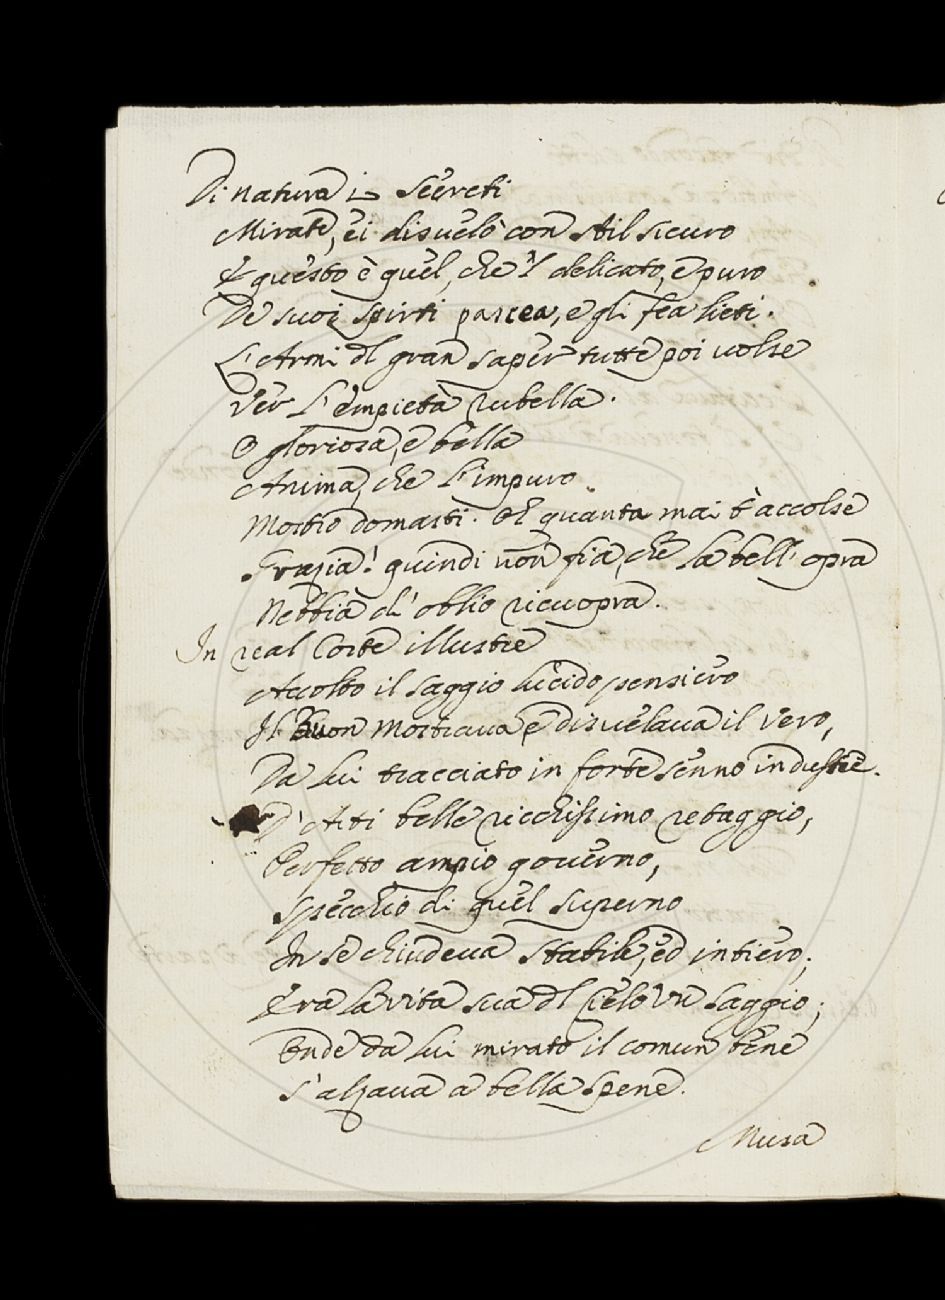 Di natura i Secreti
Mirate, ei disvelò con stil sicuro
E questo è quel, che 'l delicato, e puro
De suoi Spirti pascea, e gli fea lieti.
L'Armi dl gran saper tutte poi volse
Ver L'empietà rubella.
O gloriosa, e bella
Anima, che L'impuro
Mostro domasti. Oh quanta mai t'accolse
Grazia! quindi non fia, che la bell'opra
Nebbia d'oblio ricuopra.
In real Corte illustre
Accolto il saggio lucido pensiero
Il Buon mostrava e disvelava il vero,
Da lui tracciato in forte senno industre.
D'Arti belle ricchissimo retaggio,
Perfetto ampio governo,
Specchio di quel superno
In se chiudeva stabile, ed intiero;
Era la vita sua dl Cielo un Saggio;
Onde da lui mirato il comun bene
S'alzava a bella Spene.
Musa